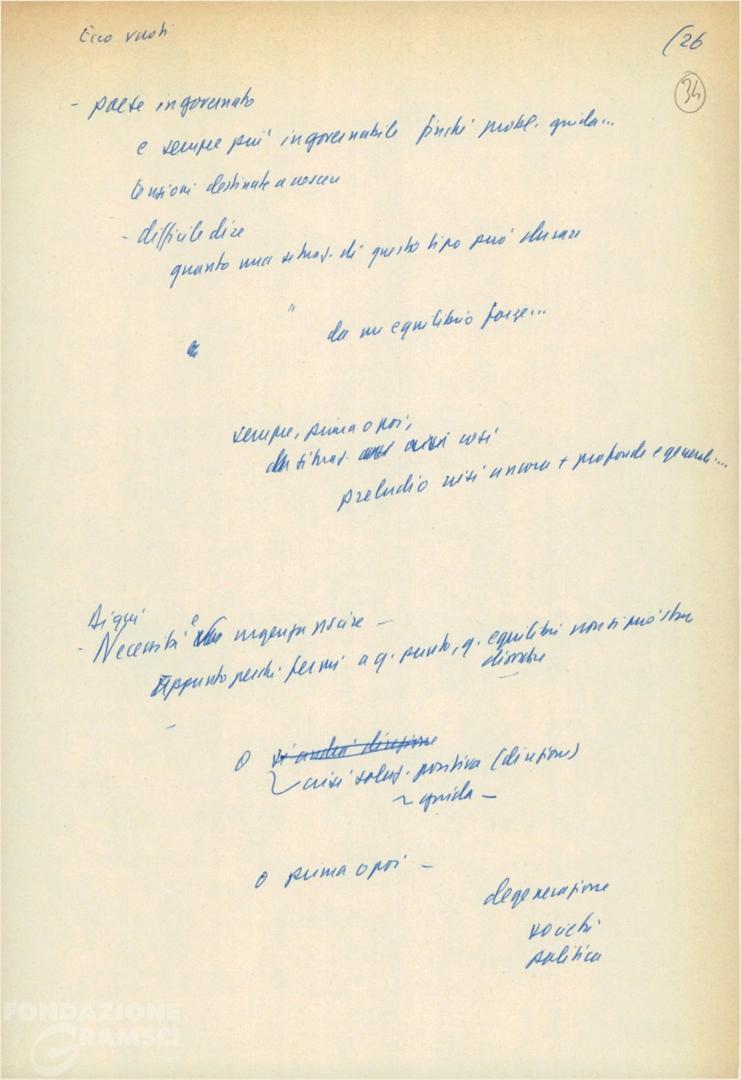 Ecco vuoti
(26
34
- paese ingovernato
e sempre più ingovernabile finché probl. guida...
tensioni destinate a crescere
- difficile dire
quanto una situaz. di questo tipo può durare
" da un equilibrio forze...
sempre, prima o poi,
da situaz. crisi così
preludio crisi ancora + profonde e generali...
Di qui
- Necessità e urgenza uscire -
Appunto perché fermi a q. punto, q. equilibri non si può stare
O si andrà direzione
crisi soluz. positiva (direzione)
~ guida -
O prima o poi -
degenerazione
società
politica
FONDAZIONE
GRAMSCI